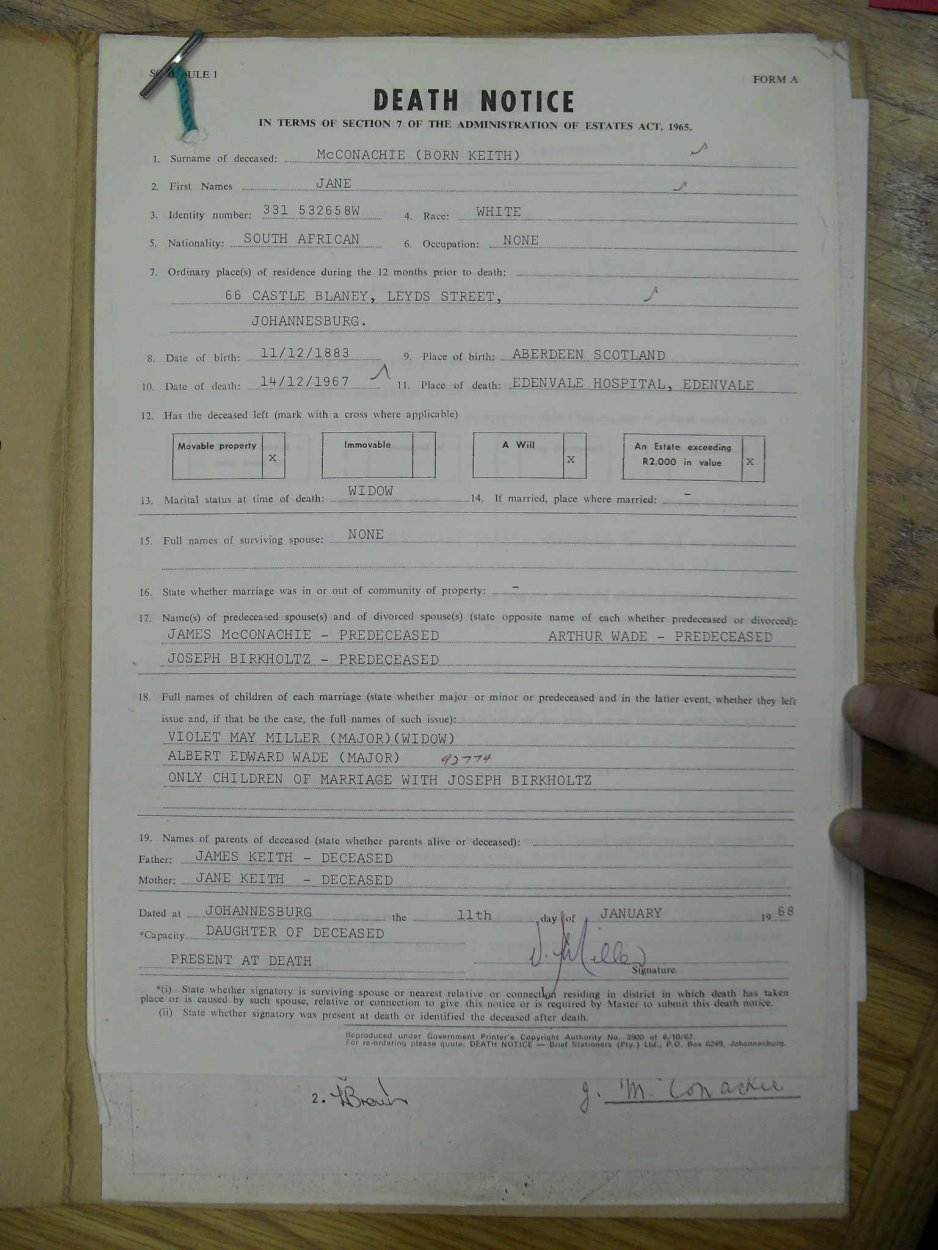 SCHEDULE 1
FORM A
DEATH NOTICE
IN TERMS OF SECTION 7 OF THE ADMINISTRATION OF ESTATES ACT, 1965.
1. Surname of deceased: McCONACHIE (BORN KEITH)
2. First Names JANE
3. Identity number: 331 532658W 4. Race: WHITE
5. Nationality: SOUTH AFRICAN 6. Occupation: NONE
7. Ordinary place(s) of residence during the 12 months prior to death:
66 CASTLE BLANEY, LEYDS STREET,
JOHANNESBURG.
8. Date of birth: 11/12/1883 9. Place of birth: ABERDEEN SCOTLAND
10. Date of death: 14/12/1967 11. Place of death: EDENVALE HOSPITAL, EDENVALE
12. Has the deceased left (mark with a cross where applicable)
Movable property X Immovable A Will X An Estate exceeding R2,000 in value X
13. Marital status at time of death: WIDOW 14. If married, place where married: –
15. Full names of surviving spouse: NONE
16. State whether marriage was in or out of community of property: –
17. Name(s) of predeceased spouse(s) and of divorced spouse(s) (state opposite name of each whether predeceased or divorced):
JAMES McCONACHIE – PREDECEASED ARTHUR WADE – PREDECEASED
JOSEPH BIRKHOLTZ – PREDECEASED
18. Full names of children of each marriage (state whether major or minor or predeceased and in the latter event, whether they left
issue and, if that be the case, the full names of such issue):
VIOLET MAY MILLER (MAJOR)(WIDOW)
ALBERT EDWARD WADE (MAJOR)
ONLY CHILDREN OF MARRIAGE WITH JOSEPH BIRKHOLTZ
19. Names of parents of deceased (state whether parents alive or deceased):
Father: JAMES KEITH – DECEASED
Mother: JANE KEITH – DECEASED
Dated at JOHANNESBURG the 11th day of JANUARY 1968
*Capacity DAUGHTER OF DECEASED
PRESENT AT DEATH
Signature.
*(i) State whether signatory is surviving spouse or nearest relative or connection residing in district in which death has taken
place or is caused by such spouse, relative or connection to give this notice or is required by Master to submit this death notice.
(ii) State whether signatory was present at death or identified the deceased after death.
Reproduced under Government Printer's Copyright Authority No. 3900 of 6/10/67.
For re-ordering please quote: DEATH NOTICE — Brief Stationers (Pty.) Ltd., P.O. Box 6249, Johannesburg.
2. J. McConachie